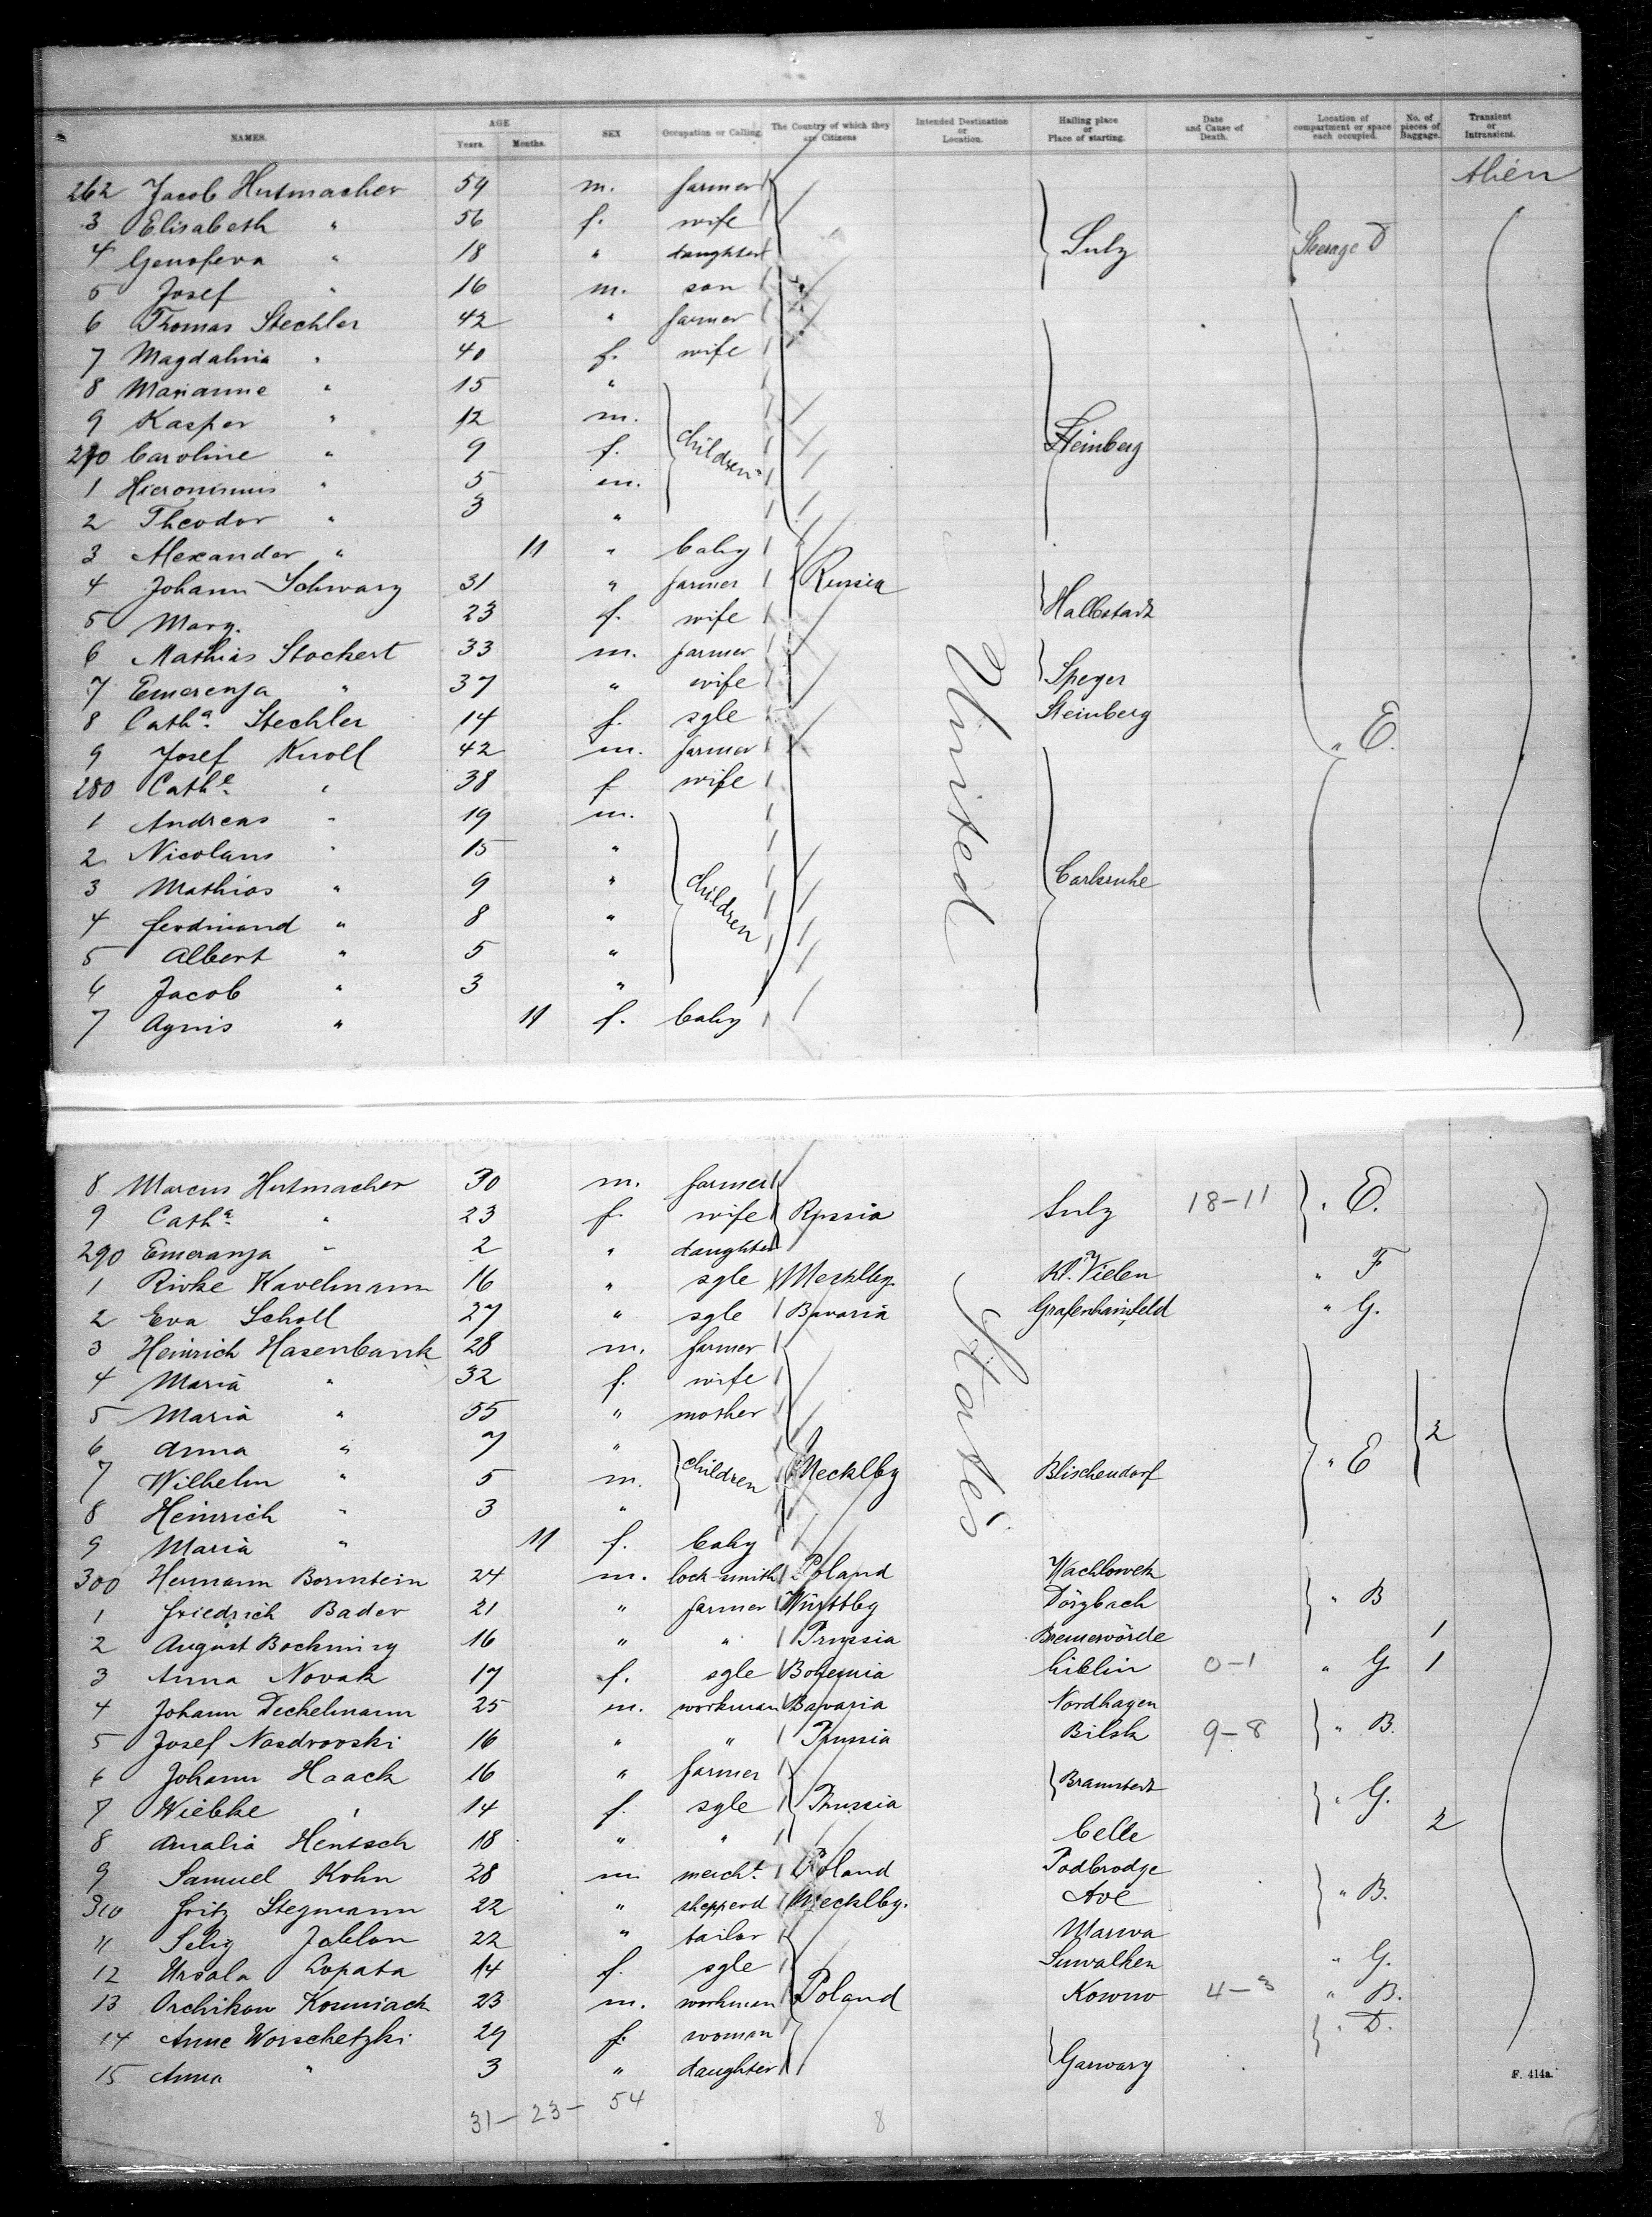 NAMES. AGE Years. Months. SEX Occupation or Calling. The Country of which they are Citizens Intended Destination or Location. Hailing place or Place of starting. Date and Cause of Death. Location of compartment or space each occupied. No. of pieces of Baggage. Transient or Intransient.
262 Jacob Hutmacher 59 m. farmer Alien
3 Elisabeth " 56 f. wife
4 Genofeva " 18 " daughter Sulz Steerage D
5 Josef " 16 m. son
6 Thomas Stechler 42 " farmer
7 Magdalina " 40 f. wife
8 Marianne " 15 "
9 Kasper " 12 m.
270 Caroline " 9 f. children Steinberg
1 Hieronimus " 5 m.
2 Theodor " 3 "
3 Alexander " 11 " baby
4 Johann Schwarz 31 " farmer Russia
5 Marg. 23 f. wife Halbstadt
6 Mathias Stockert 33 m. farmer
7 Emerenza " 37 " wife Speyer
8 Catha. Stechler 14 f. sgle Steinberg
9 Josef Knoll 42 m. farmer " E.
280 Cathe. " 38 f wife
1 Andreas " 19 m.
2 Nicolaus " 15 "
3 Mathias " 9 " children Carlsruhe
4 ferdinand " 8 "
5 Albert " 5 "
6 Jacob " 3 "
7 Agnis " 11 f. baby
United States
8 Marcus Hutmacher 30 m. farmer
9 Catha. " 23 f. wife Russia Sulz 18-11 " E.
290 Emeranza " 2 " daughter
1 Rivke Kavelmann 16 " sgle Mecklbg. Kl. Vielen " F
2 Eva Scholl 27 " sgle Bavaria Grafenhainfeld " G.
3 Heinrich Hasenbank 28 m. farmer
4 Maria " 32 f. wife
5 Maria " 55 " mother 2
6 Anna " 7 "
7 Wilhelm " 5 m. children Mecklbg Blischendorf " E
8 Heinrich " 3 "
9 Maria " 11 f. baby
300 Hermann Bornstein 24 m. lock-smith Poland Wachlowek
1 Friedrich Bader 21 " farmer Württbg Dörzbach " B
2 August Bochming 16 " " Prussia Bremervörde 1
3 Anna Novak 17 f. sgle Bohemia Liblin 0-1 " G 1
4 Johann Dechelmann 25 m. workman Bavaria Nordhagen
5 Josef Nosdrovski 16 " " Prussia Bilsk 9-8 " B.
6 Johann Haack 16 " farmer Bramstedt
7 Wiebke " 14 f. sgle Prussia " G.
8 Amalia Hentsch 18 " " Celle 2
9 Samuel Kohn 28 m mercht. Poland Podbrodze
310 Fritz Stegmann 22 " shepperd Mecklbg. Ave " B.
11 Selig Jablon 22 " tailor Marwa
12 Ursala Lopata 14 f. sgle Suwalken " G.
13 Orchikow Kosmiack 23 m. workman Poland Kowno 4-3 " B.
14 Anne Worschetzki 29 f. woman " D.
15 Anna " 3 " daughter Garwary
F. 414a.
31- 23- 54
8